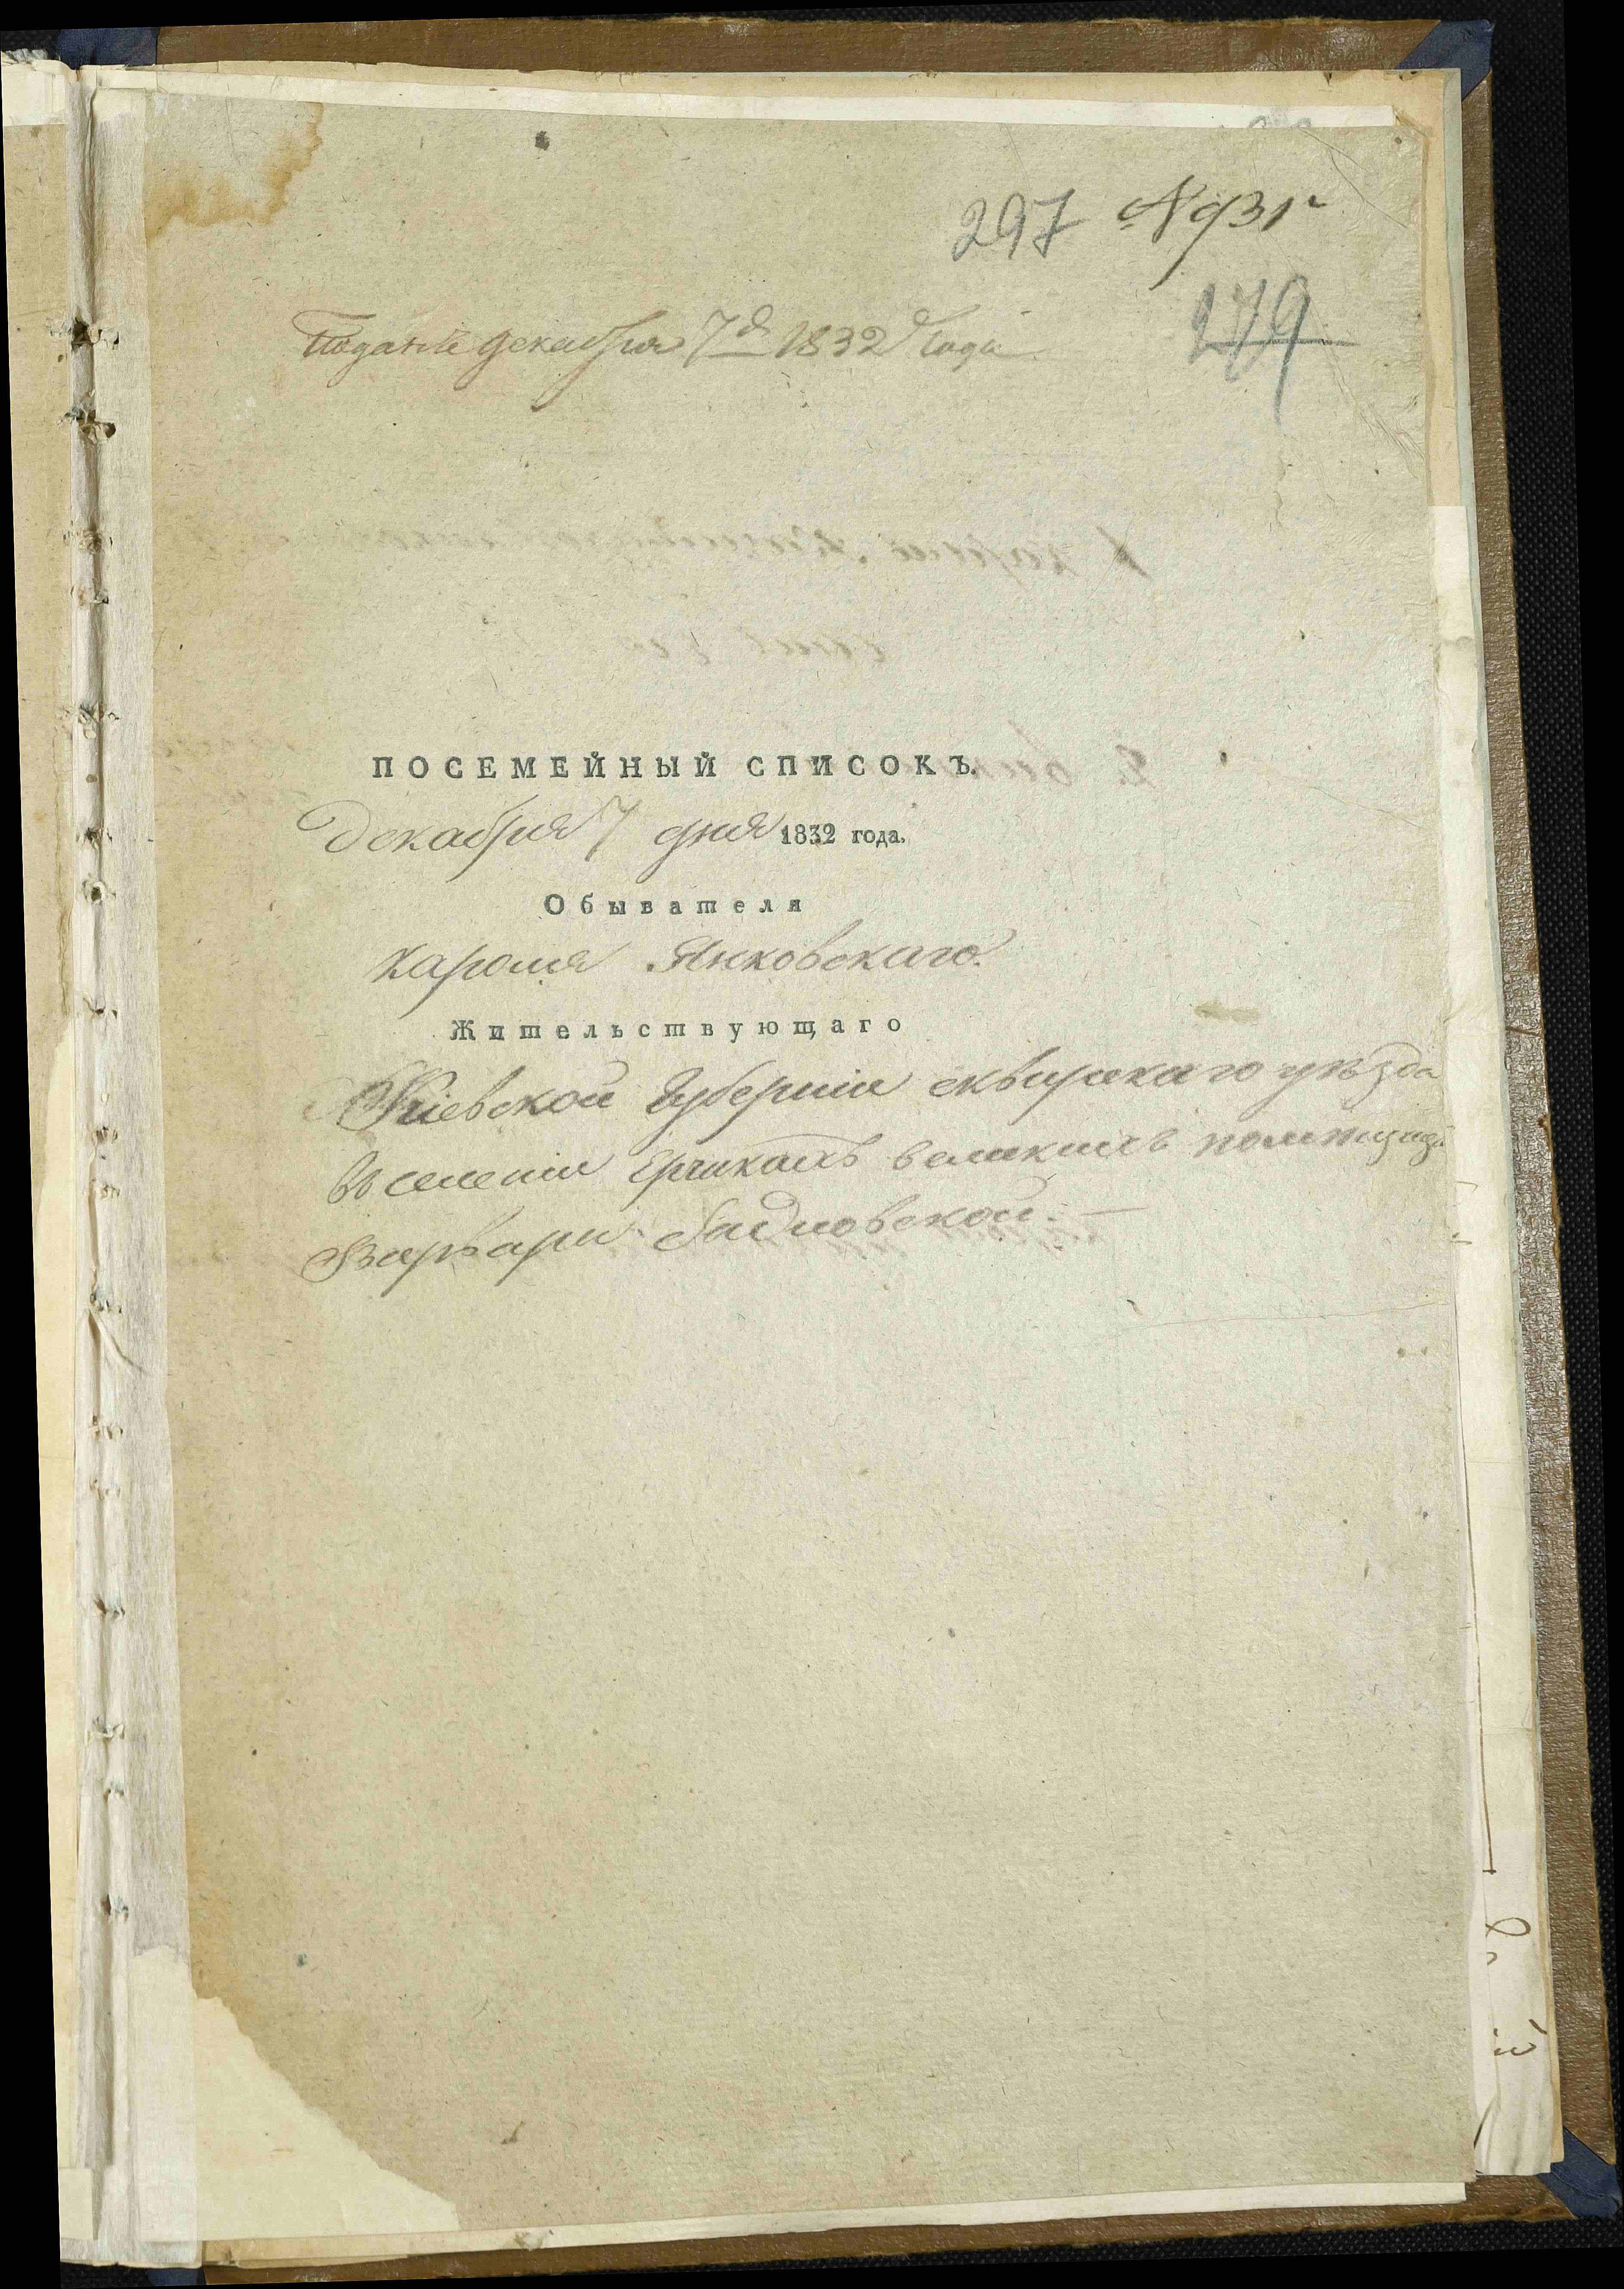 297 № 931
279
Поданъ декабря 7д 1832 года
ПОСЕМЕЙНЫЙ СПИСОКЪ.
Декабря 7 дня 1832 года.
Обывателя
Кароля Янковскаго.
Жительствующаго
Кіевской Губерніи сквирскаго уѣзда
въ селеніи Ерчикахъ великихъ помѣщицы
Варвари